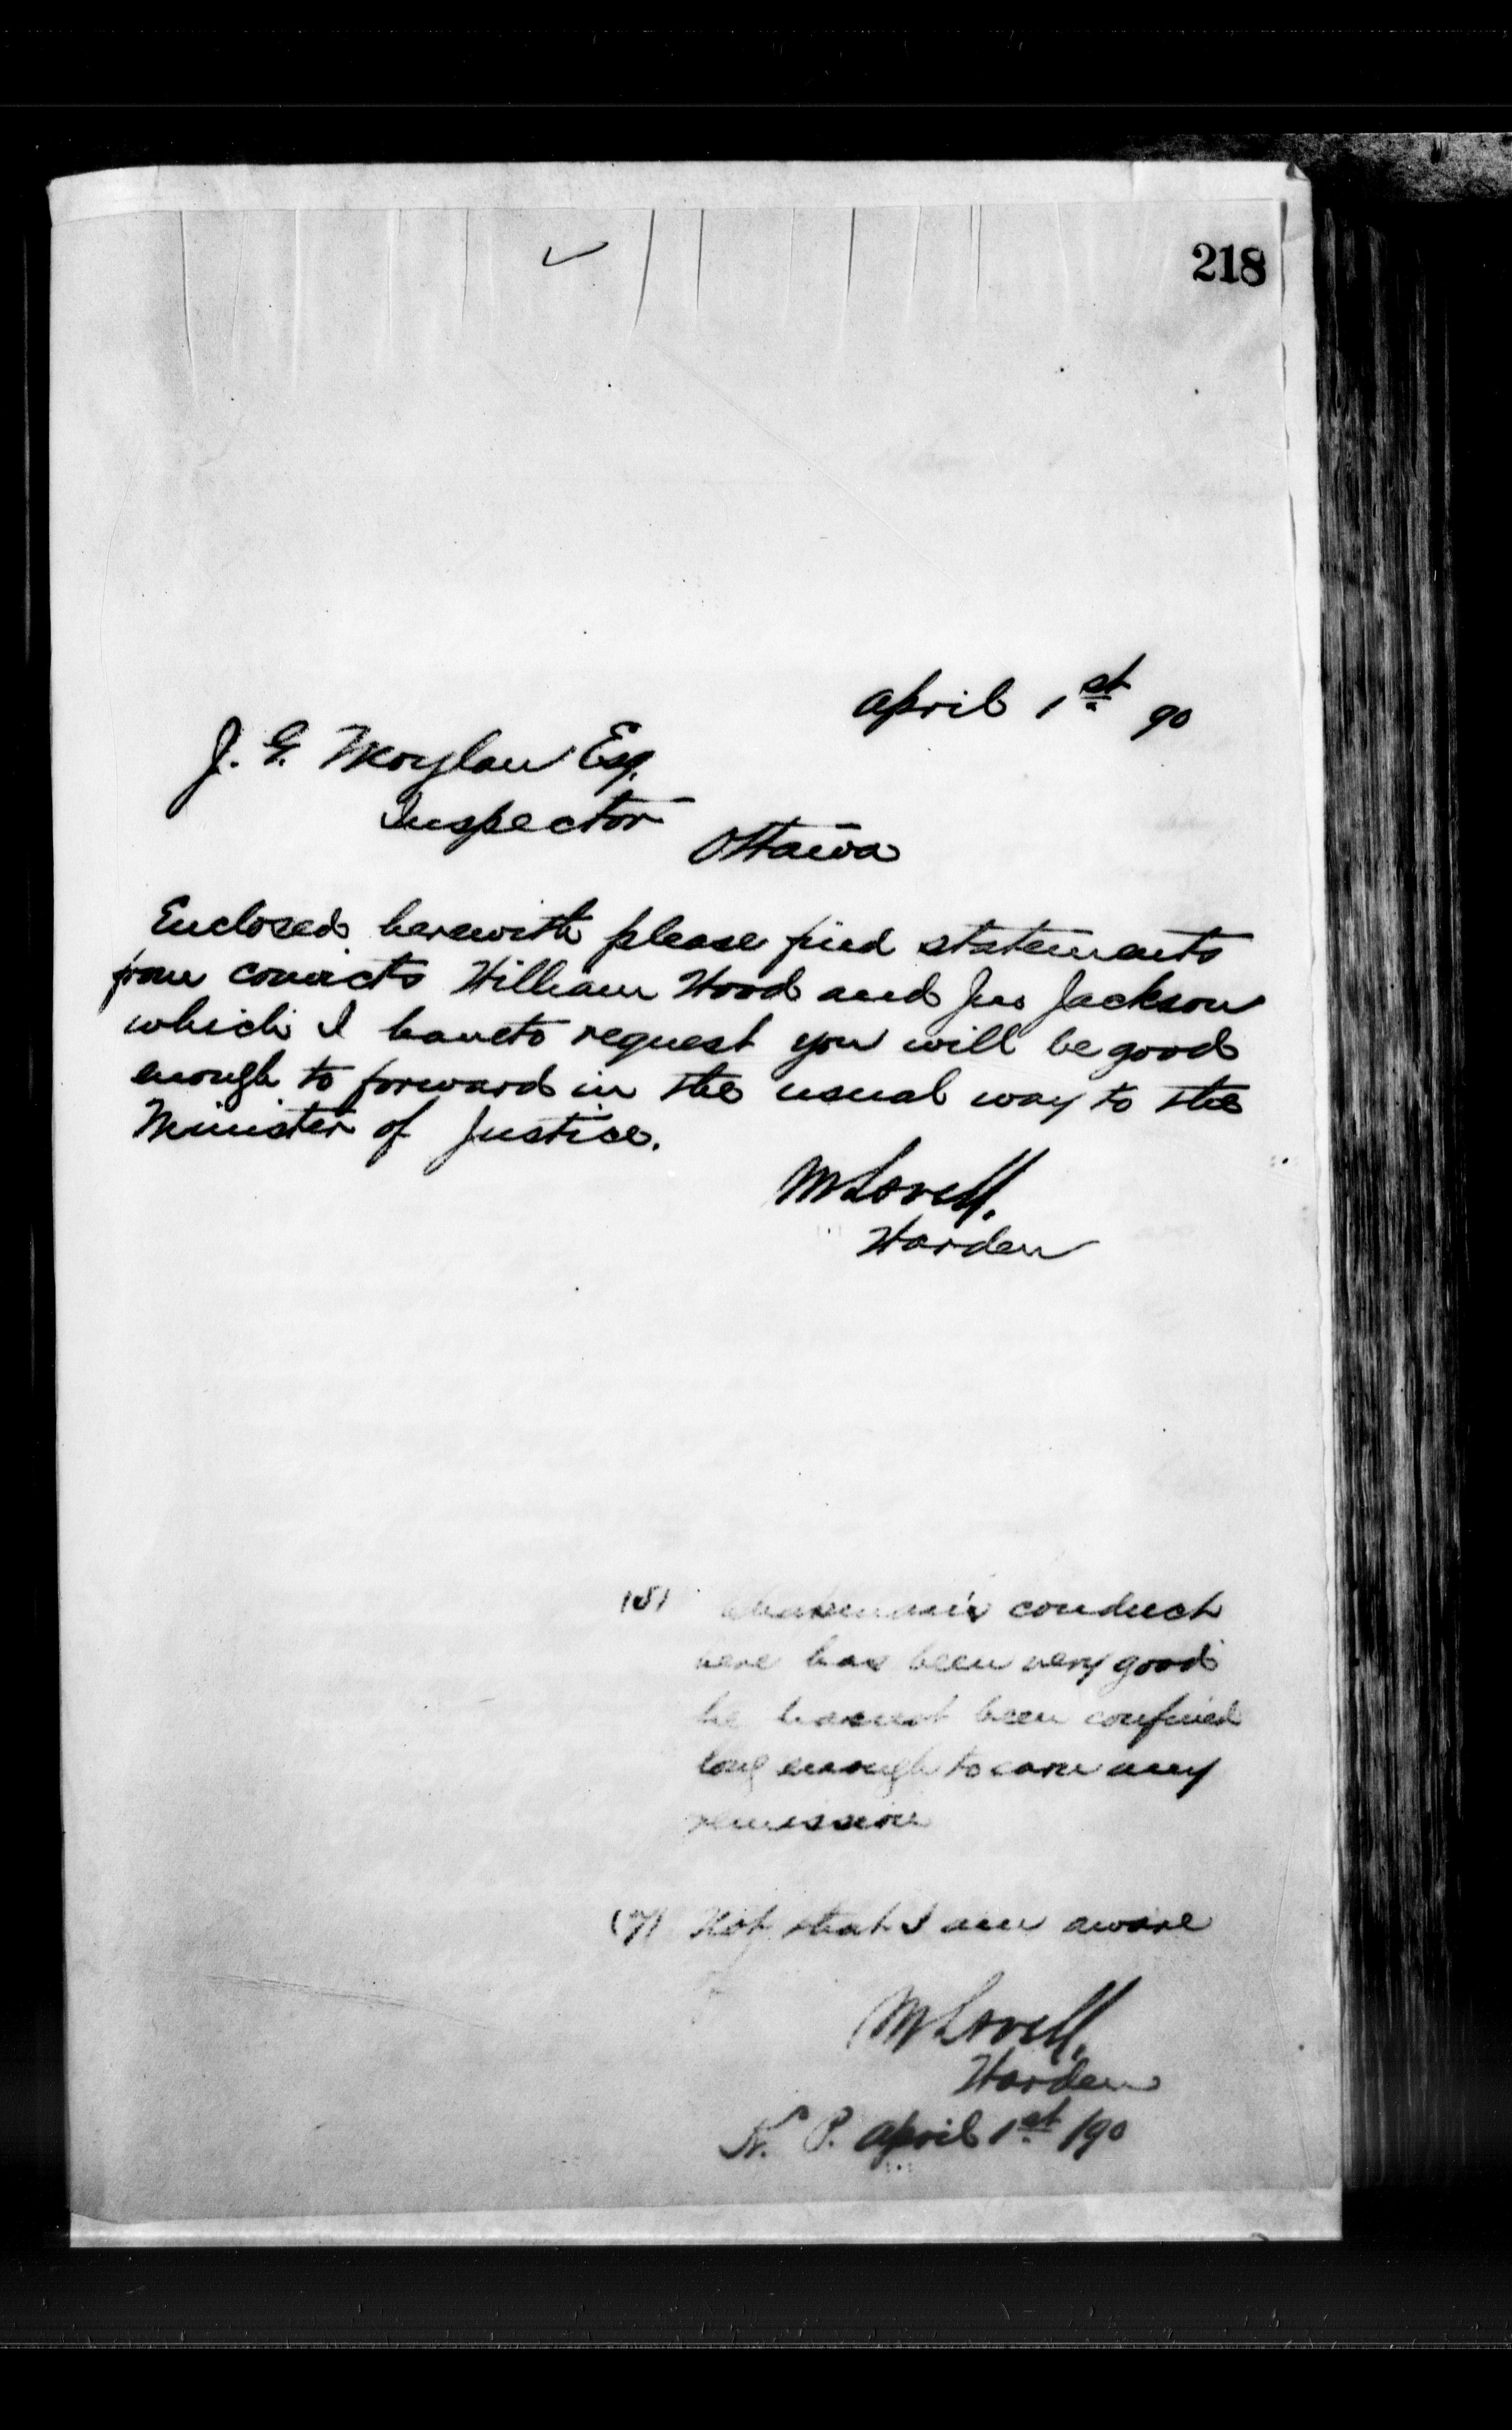 218
April 1st 90
J. G. Moylan Esq.
Inspector
Ottawa
Enclosed herewith please find statements
from convicts William Wood and Jno Jackson
which I have to request you will be good
enough to forward in the usual way to the
Minister of Justice.
M Lavell.
Warden
conduct
here has been very good
he has not been confined
long enough to earn any
remission
(7) Not that I am aware
M Lavell.
Warden
K. P. April 1st /90